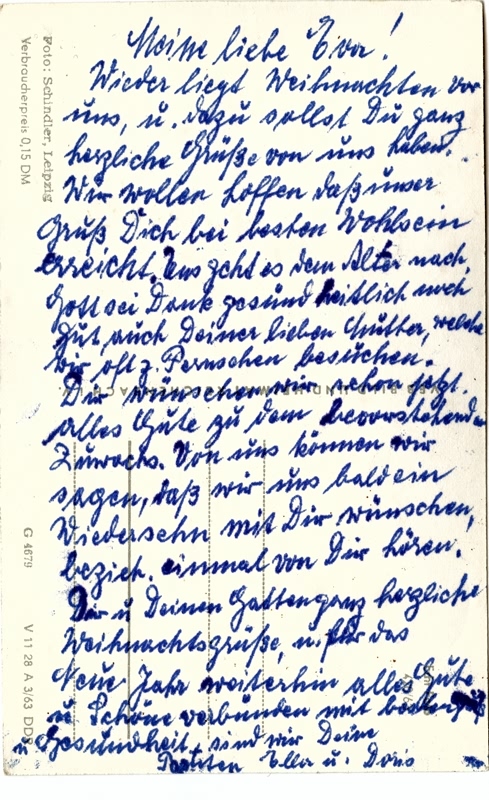 Meine liebe Eva!
Wieder liegt Weihnachten vor
uns, u. dazu sollst Du ganz
herzliche Grüße von uns haben.
Wir wollen hoffen daß unser
Gruß Dich bei besten Wohlsein
erreicht. Uns geht es dem Alter nach,
Gott sei Dank gesundheitlich noch
gut, auch Deiner lieben Mutter, welche
wir oft z. Fernsehen besuchen.
Dir wünschen wir schon jetzt
alles Gute zu dem bevorstehenden
Zuwachs. Von uns können wir
sagen, daß wir uns bald ein
Wiedersehn mit Dir wünschen,
bezieh. einmal von Dir hören.
Dir u Deinen Gatten ganz herzliche
Weihnachtsgrüße, u. für das
Neue Jahr weiterhin alles Gute
u. Schöne verbunden mit
u Gesundheit, sind wir Deine
Ella u. Doris
Foto: Schindler, Leipzig
Verbraucherpreis 0,15 DM
G 4679
V 11 28 A 3/63 DDR